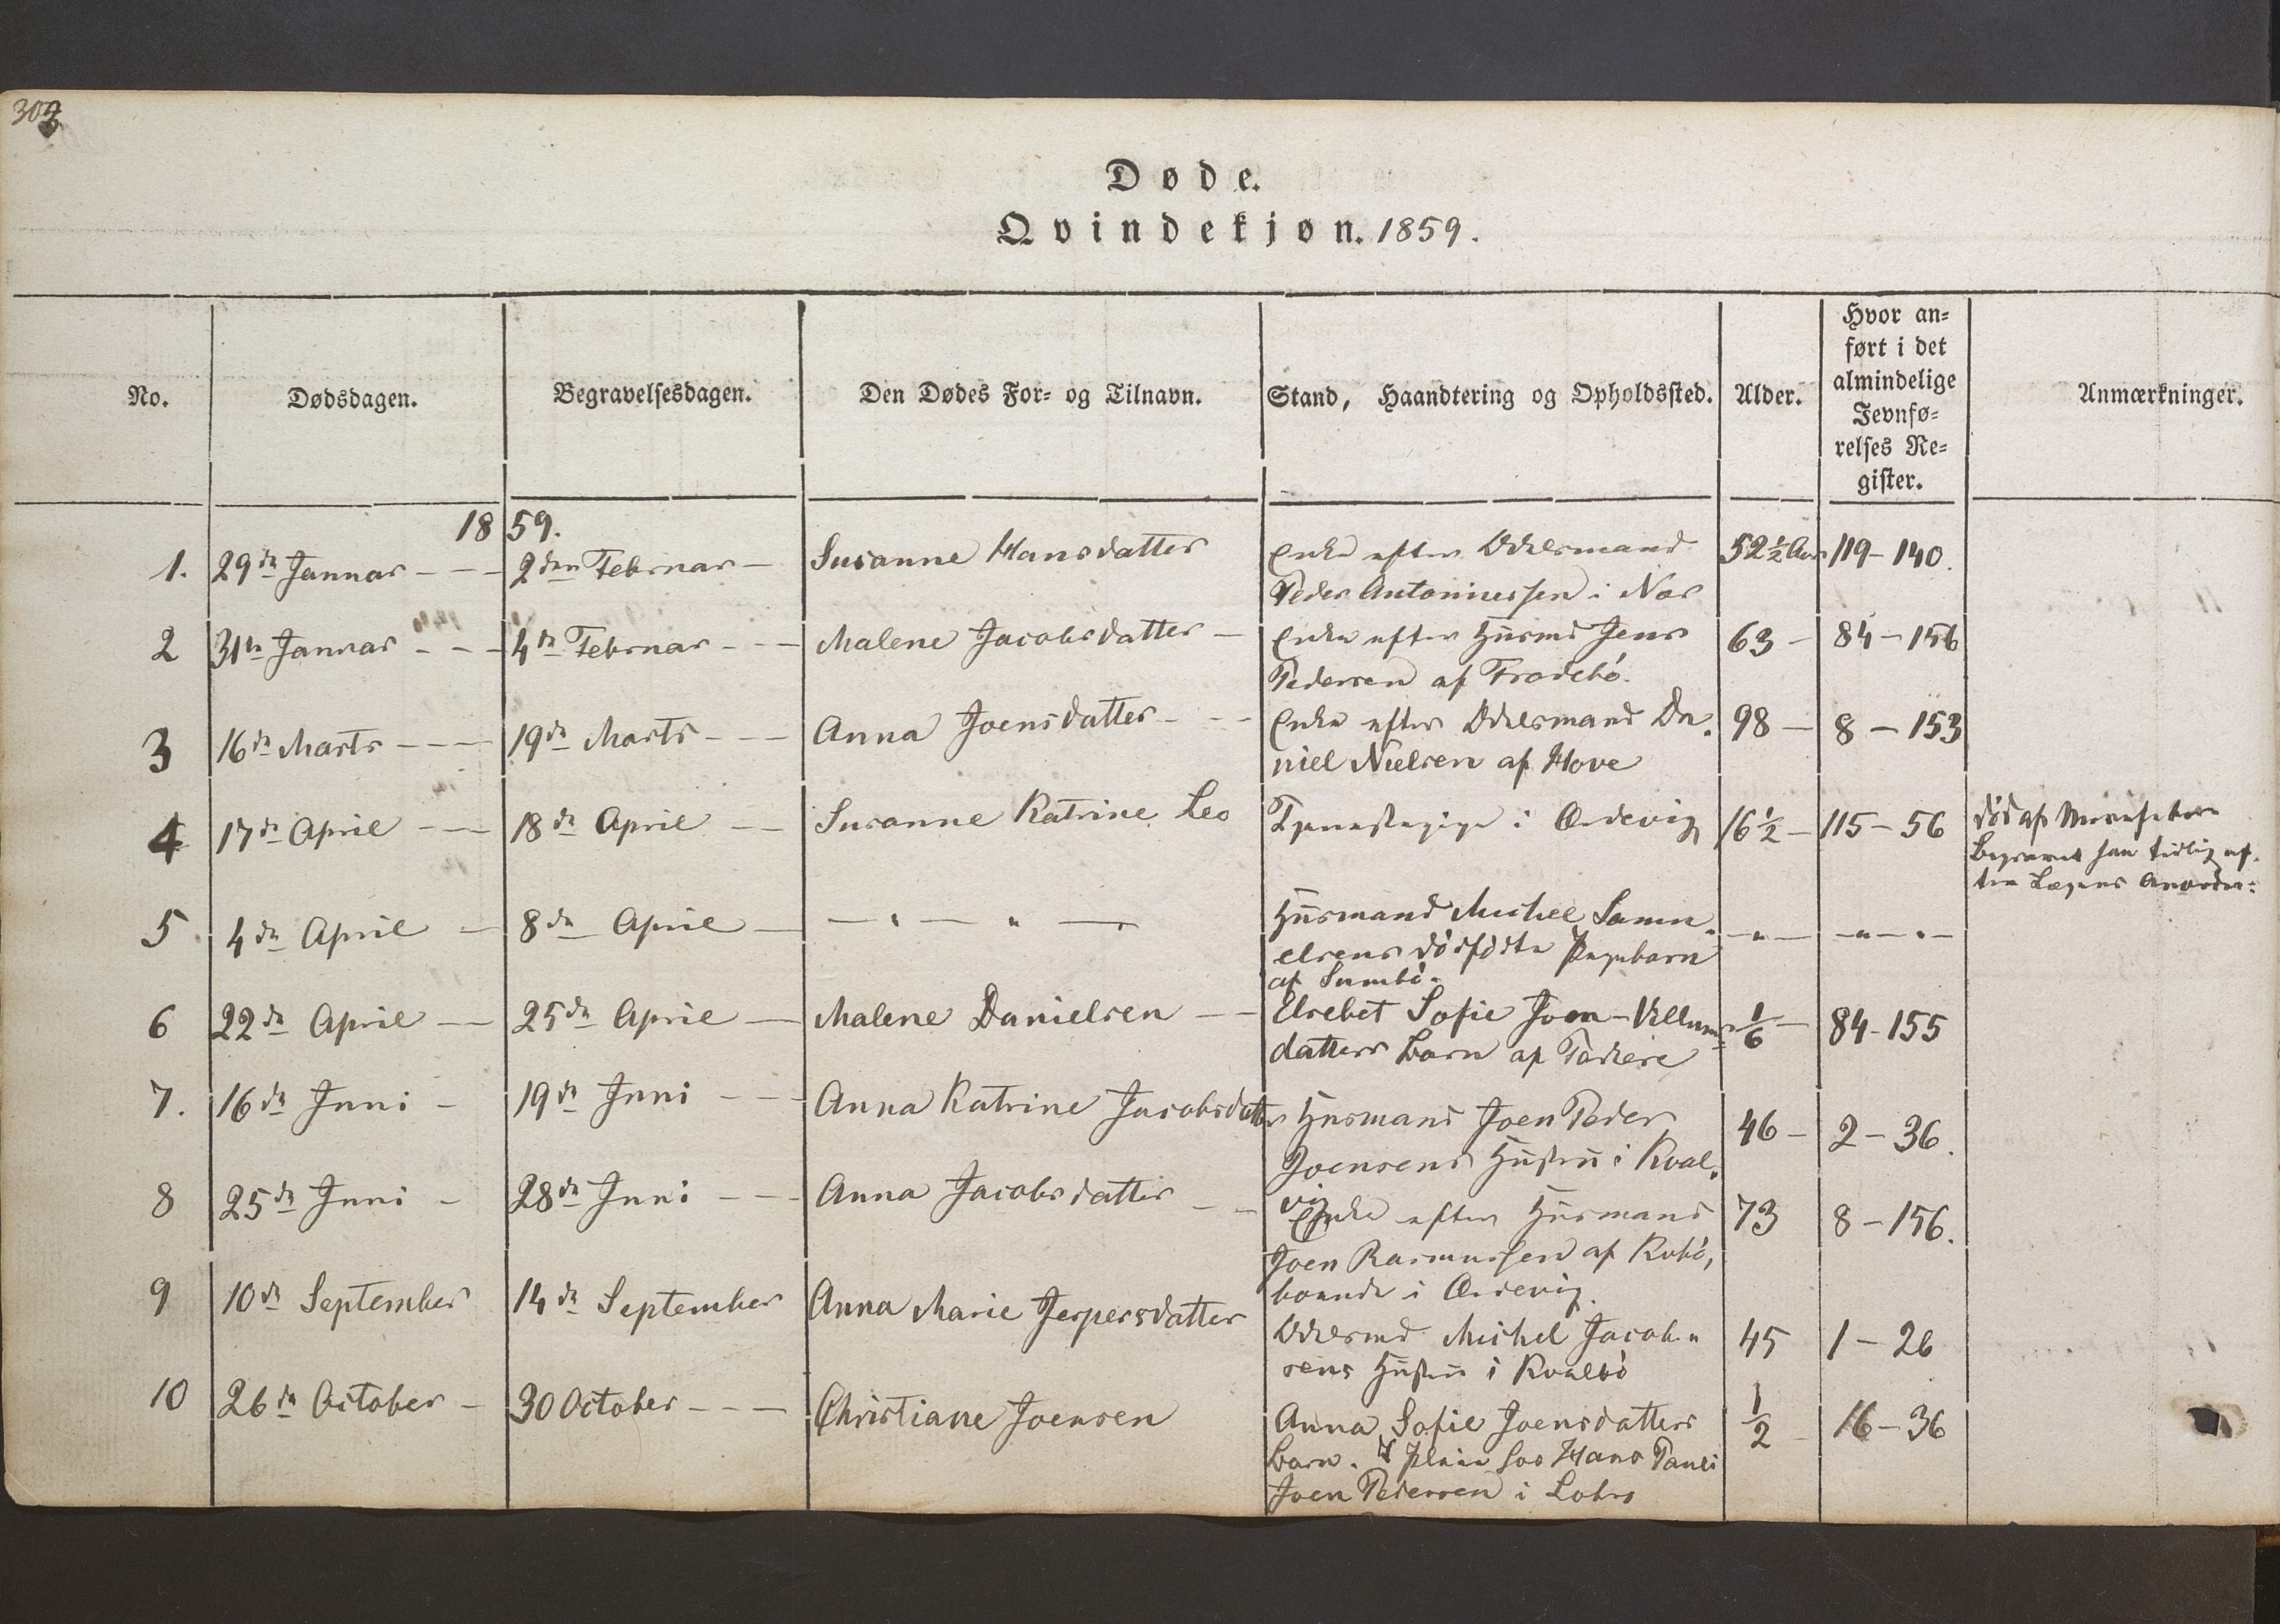 Døde.
Qvindekjøn. 1859.
No. Dødsdagen. Begravelsesdagen. Den Dødes For- og Tilnavn. Stand, Haandtering og Opholdssted. Alder. Hvor an-
ført i det
almindelige
Jevnfø-
relses Re-
gister. Anmærkninger.
1859.
1. 29de Januar - - - 2den Februar - Susanne Hansdatter Enke efter Odelsmand 52 1/2 Aar 119 - 140.
Peder Antoniussen i Næs
2 31te Januar - - - 4de Februar - - - Malene Jacobsdatter - Enke efter Husmd Jens 63 - 84 - 156
Pedersen af Frodebø.
3 16de Marts - - - 19de Marts - - - Anna Joensdatter - - - Enke efter Odelsmand Da- 98 - 8 - 153
niel Nielsen af Hove
4 17de April - - - 18de April - - Susanne Katrine Leo Tjenestepige i Ørdevig 16 1/2 - 115 - 56 død af
Begravet saa tidlig ef-
ter Lægens
5. 4de April - 8de April - - " - " - Husmand Michel Samu- - " - - " - " -
elsens dødfødte Pigebarn
af Sumbø.
6 22de April - - 25de April - Malene Danielsen - - Elsebet Sofie Joen-Villums- 1/6 - 84 - 155
datters Barn af Porkere
7. 16de Juni - 19de Juni - - - Anna Katrine Jacobsdatter Husmand Joen Peder 46 - 2 - 36.
Joensens Hustru i Kval-
vig
8 25de Juni - 28de Juni - - - Anna Jacobsdatter - - Enke efter Husmand 73 8 - 156.
Joen Rasmussen af
boende i Ørdevig.
9 10de September 14de September Anna Marie Jespersdatter Odelsmd Michel Jacob- 45 1 - 26
sens Hustru i Kvalbø
10 26de October - 30 October - - - Christiane Joensen Anna Sofie Joensdatters 1/2 - 16 - 36
Barn. Hans Pauli
Joen Pedersen i